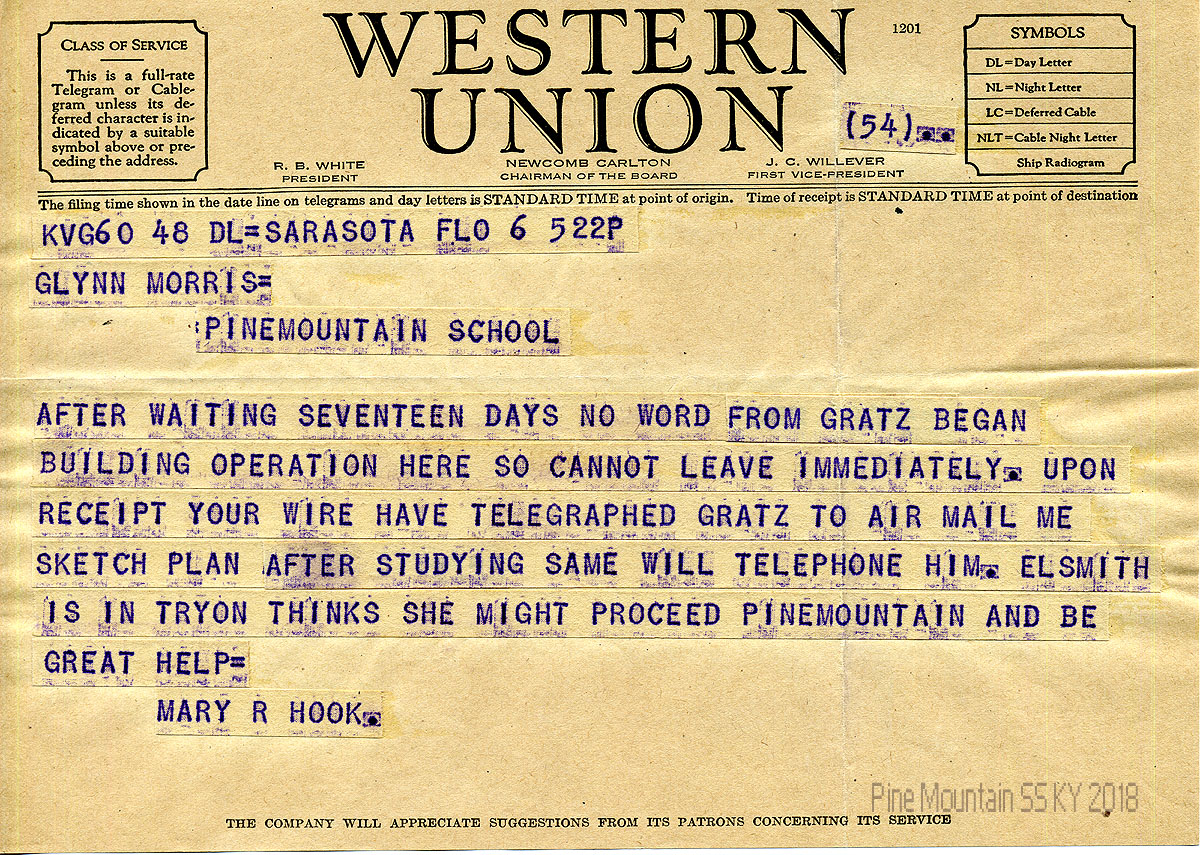 CLASS OF SERVICE
This is a full-rate
Telegram or Cable-
gram unless its de-
ferred character is in-
dicated by a suitable
symbol above or pre-
ceding the address.
WESTERN
UNION
1201
(54)..
R. B. WHITE
PRESIDENT
NEWCOMB CARLTON
CHAIRMAN OF THE BOARD
J. C. WILLEVER
FIRST VICE-PRESIDENT
SYMBOLS
DL=Day Letter
NL=Night Letter
LC=Deferred Cable
NLT=Cable Night Letter
Ship Radiogram
The filing time shown in the date line on telegrams and day letters is STANDARD TIME at point of origin. Time of receipt is STANDARD TIME at point of destination
KVG60 48 DL=SARASOTA FLO 6 522P
GLYNN MORRIS=
:PINEMOUNTAIN SCHOOL
AFTER WAITING SEVENTEEN DAYS NO WORD FROM GRATZ BEGAN
BUILDING OPERATION HERE SO CANNOT LEAVE IMMEDIATELY. UPON
RECEIPT YOUR WIRE HAVE TELEGRAPHED GRATZ TO AIR MAIL ME
SKETCH PLAN AFTER STUDYING SAME WILL TELEPHONE HIM. ELSMITH
IS IN TRYON THINKS SHE MIGHT PROCEED PINEMOUNTAIN AND BE
GREAT HELP=
MARY R HOOK.
Pine Mountain SS KY 2018
THE COMPANY WILL APPRECIATE SUGGESTIONS FROM ITS PATRONS CONCERNING ITS SERVICE